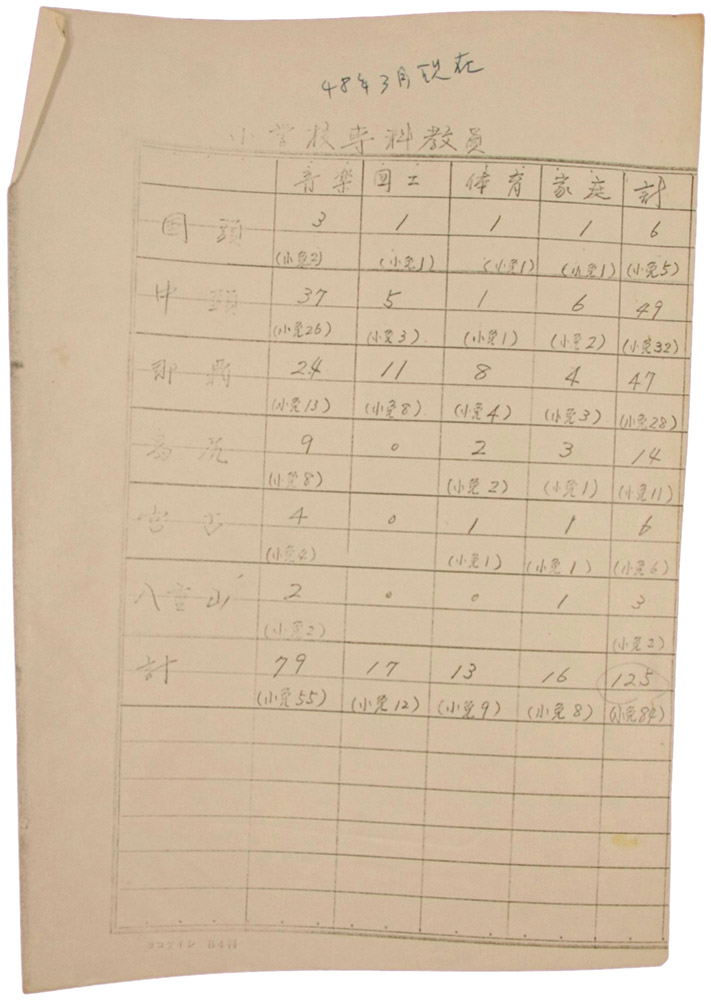 48年3月現在
小学校専科教員
音楽 図工 体育 家庭 計
国頭 3 1 1 1 6
(小免2) (小免1) (小免1) (小免1) (小免5)
中頭 37 5 1 6 49
(小免26) (小免3) (小免1) (小免2) (小免32)
那覇 24 11 8 4 47
(小免13) (小免8) (小免4) (小免3) (小免28)
島尻 9 0 2 3 14
(小免8) (小免2) (小免1) (小免11)
宮古 4 0 1 1 6
(小免4) (小免1) (小免1) (小免6)
八重山 2 0 0 1 3
(小免2) (小免2)
計 79 17 13 16 125
(小免55) (小免12) (小免9) (小免8) (小免84)